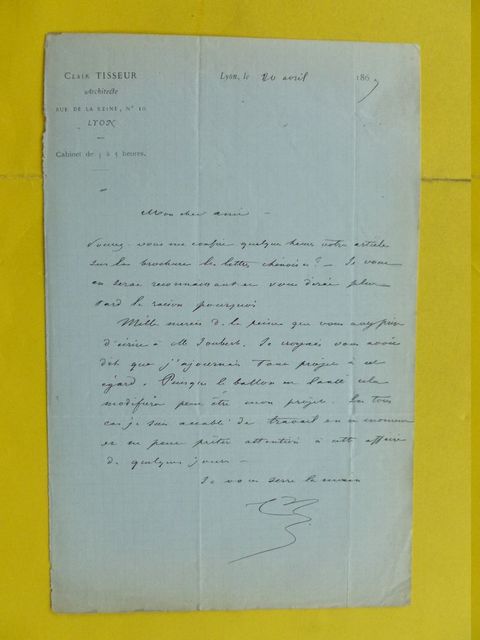 Clair TISSEUR
Architecte
RUE DE LA REINE, N° 10
LYON
Cabinet de 3 à 5 heures.
Lyon, le 20 avril 1867
Mon cher ami
Pouvez-vous me confier quelques heures votre article
sur la brochure les lettres chinoises? — Je vous
en serai reconnaissant et vous dirai plus
tard la raison pourquoi
Mille mercis de la peine que vous avez pris
d'écrire à M Joubert. Je croyais vous avoir
dit que j'ajournais tout projet à cet
égard. Puisque le ballon en cela
modifiera peut être mon projet. En tous
cas je suis accablé de travail en ce moment
et ne peux prêter attention à cette affaire
de quelques jours —
Je vous serre la main